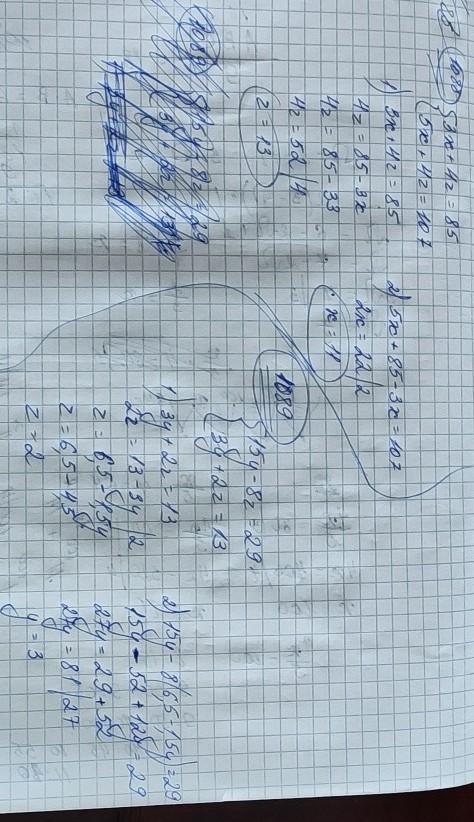 1080 {3x + 4z = 85
{5x + 4z = 107
1) 3x + 4z = 85
4z = 85 - 3x
4z = 85 - 33
4z = 52 | 4
z = 13
2) 5x + 85 - 3x = 107
2x = 22 | 2
x = 11
1089
15y - 8z = 29
1089
{15y - 8z = 29.
{3y + 2z = 13
1) 3y + 2z = 13
2z = 13 - 3y | 2
z = 6,5 - 1,5y
z = 6,5 - 4,5
z = 2
2) 15y - 8(6,5 - 1,5y) = 29
15y - 52 + 12y = 29
27y = 29 + 52
27y = 81 | 27
y = 3